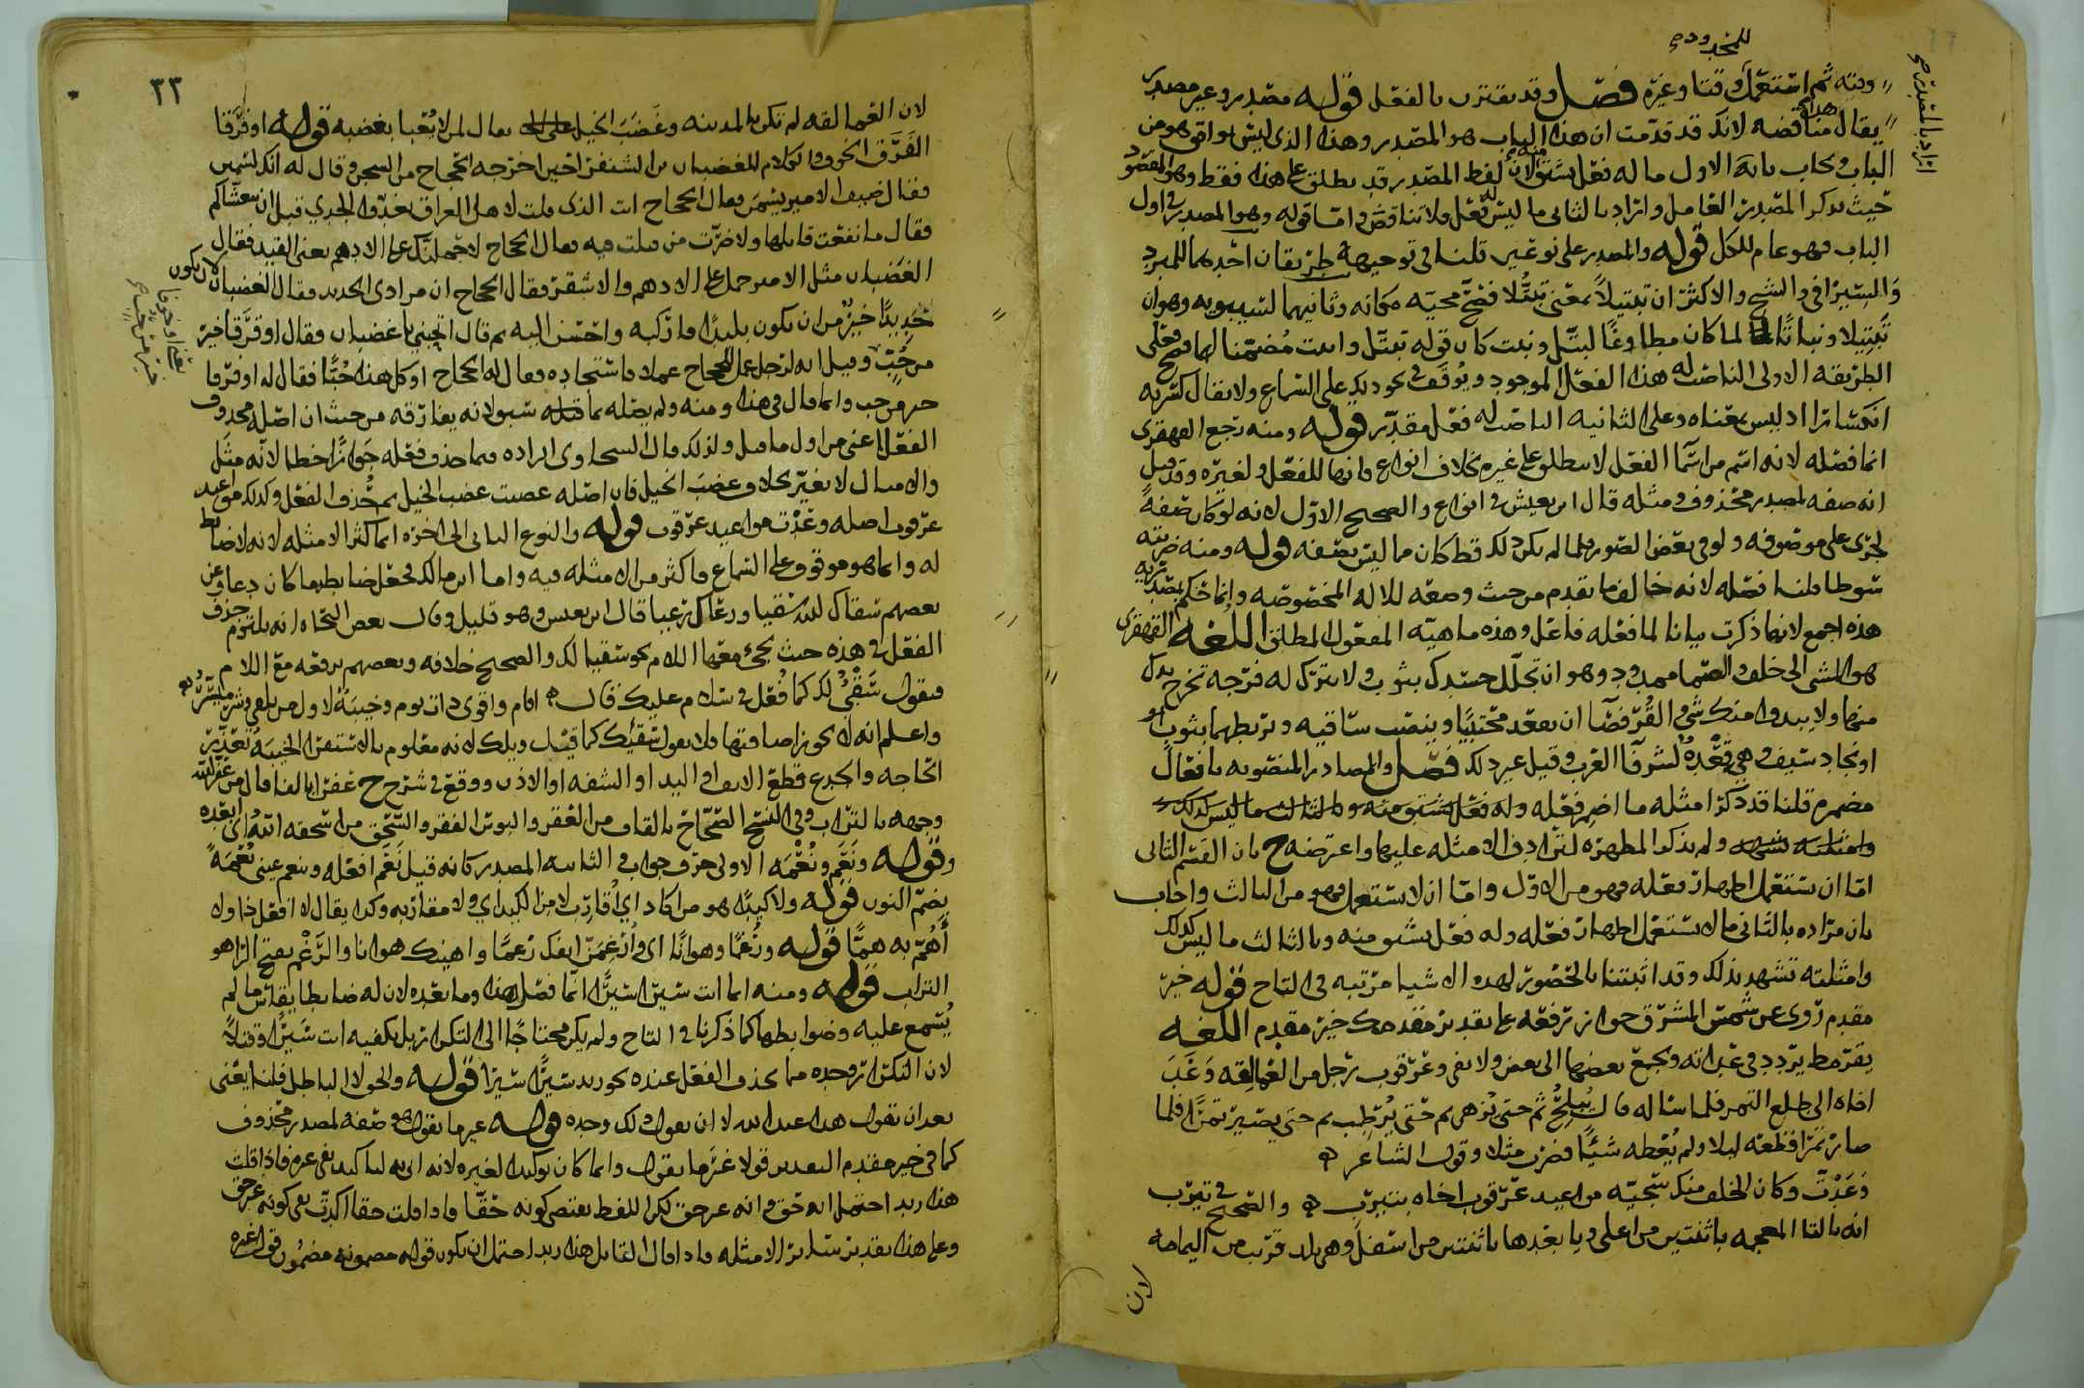 للمخدودي
ومنه ثم استعمل وقتا وغيره فصل وقد يقترن بالفعل قوله مصدر وغير مصدر
يقال هذا مناقضه لانك قد قدمت ان هذا الباب هو المصدر وهذا الذي ليس هو من
الباب ويجاب بانه الاول ما له فعل يشتق منه لان لفظ المصدر قد يطلق على هذا فقط وهو المقصود
حيث يذكر المصدر العامل واراد بالثاني ما ليس له فعل فلا تناقض واما قوله وهو المصدر في اول
الباب فهو عام للكل قوله والمصدر على نوعين قلنا في توجيهه طريقان احدهما للمبرد
والسيرافي والشيخ والاكثر ان تبتيلا بمعنى تبتلا فصح مجيه مكانه وثانيهما لسيبويه وهو ان
تبتيلا ونباتا لما كان مطاوعا لبتل ونبت كان قوله تبتل وانبت متضمنا لهما فعلى
الطريقه الاولى الناصب له هذا الفعل الموجود ويوقف في نحو ذلك على السماع ولا يقال كسرته
انكسارا اذ ليس بمعناه وعلى الثانيه الناصب له فعل مقدر قوله ومنه رجع القهقرى
انما فصله لانه اسم من اسما الفعل لا يطلق على غيره بخلاف انواع فانها للفعل ولغيره وقد قيل
انه صفه لمصدر محذوف ومثله قال ابن يعيش في انواع والصحيح الاول لانه لو كان صفة
لجرى على موصوفه ولو في بعض الصور فلما لم يكن ذلك قط كان مما ليس بصفه قوله ومنه ضربته
سوطا قلنا فصله لانه خالف ما تقدم من حيث وضعه للاله المخصوصه وانما حكم بمصدريه
هذه اجمع لانها ذكرت بيانا لما فعله فاعل وهذه ماهية المفعول المطلق اللغه القهقرى
هو المشي الى خلف والصما ممدود وهو ان تجلل جسدك بثوب ولا تترك له فرجه تخرج يدك
منها ولا يبدوا منك شي والقرفصا ان تقعد محتبيا وينصب ساقيه وتربطهما بثوب او
او نجاد سيف وهي قعدة اشراف العرب وقيل غير ذلك فصل والمصادر المنصوبه بافعال
مضمره قلنا قد ذكر امثله ما اضمر فعله وله فعل يشتق منه وبالثالث ما ليس كذلك
وامثلته تشهد ولم يذكر المظهره لترادف الامثله عليها واعترضه ح بان القسم الثاني
اما ان يستعمل اظهار فعله فهو من الاول واما ان لا يستعمل فهو من الثالث واجاب
بان مراده بالثاني ما لا يستعمل اظهار فعله وله فعل يشتق منه وبالثالث ما ليس كذلك
وامثلته تشهد بذلك وقد اثبتنا بالحضور لهذه الاشيا مرتبه في التاج قوله خير
مقدم روي عن شمس المشرق جواز رفعه على تقدير مقدمك خير مقدم اللغه
يقرمط يردد في عداته ويجمع بعضها الى بعض ولا يفي وعرقوب رجل من العمالقه وعد
اخاه الى طلع التمر فلما ساله قال حتى يبلح ثم حتى يزهي ثم حتى يرطب ثم حتى يصير تمرا فلما
صار تمرا قطعه ليلا ولم يعطه شيئا فضرب مثلا وقول الشاعر
وعدت وكان الخلف منك سجيه مواعيد عرقوب اخاه بيترب والصحيح في يترب
انه بالتا المعجمه باثنتين من اعلى ويا بعدها باثنتين من اسفل وهي بلد قريب من اليمامه
لان
٢٢
لان العمالقه لم تكن بالمدينه وغضب الخيل على اللجم يقال لمن لا يعبا بغضبه قوله او فرقا
الفرق الخوف والكلام للغضبان بن الشنفري حين اخرجه الحجاج من السجن وقال له انك لسمين
فقال ضيف الامير يسمن فقال الحجاج انت الذي قلت لاهل العراق تغدوا الجدي قبل ان يتعشاكم
فقال ما نفعت قايلها ولا ضرت من قيلت فيه فقال الحجاج لاحملنك على الادهم يعني القيد فقال
الغضبان مثل الامير حمل على الادهم والاشقر فقال الحجاج ان مرادي الحديد فقال الغضبان لان يكون
حديدا خير من ان يكون بليدا فاركبه واحسن اليه ثم قال اتحبني يا غضبان فقال او فرقا خير
من حب وقيل انه لرجل عمل للحجاج عملا فاستجاده فقال له الحجاج اوكل هذا حبا فقال له او فرقا
خير من حب وانما قال في هذا ومنه ولم يصله بما قبله لانه يفارقه من حيث ان اصله محذوف
الفعل اعني من اول ما قيل ولذلك قال السخاوي ايراده فيما حذف فعله جوازا خطا لانه مثل
والامثال لا تغير بخلاف غضب الخيل فان اصله غضبت غضب الخيل ثم حذف الفعل وكذلك مواعيد
عرقوب اصله وعدت مواعيد عرقوب قوله والنوع الثاني الى اخره انما كثر الامثله لانه لا ضابط
له وانما هو موقوف على السماع فاكثر من الامثله فيه واما ابن مالك فجعل ضابطها كان دعا وعن
بعضهم سقاك الله سقيا ورعاك رعيا قال ابن يعيش وهو قليل وقال بعض النحاه انه يلتزم حذف
الفعل في هذه حيث يجي معها اللام نحو سقيا لك والصحيح خلافه وبعضهم يرفعه مع اللام
فيقول سقي لك كما فعل في سلام عليك قال
واعلم انه لا يجوز اضافتها فلا يقول سقيك كما قيل ويلك لانه معلوم بالاستقرا الخيبه تعذر
الحاجه والجدع قطع الانف او اليد او الشفه او الاذن ووقع في شرح ح عفرا بالفا قال من عفر الله
وجهه بالتراب وفي النسخ الصحاح بالقاف من العقر والبوس الفقر والسحق من اسحقه الله اي ابعده
وقوله ونعم ونعمه الاولى حرف جواب والثانيه المصدر كانه قيل نعم افعله وينعم عيني نعمة
بضم النون قوله ولا كيدا هو من اكاد اي اقارب لا من الكيد اي ولا مقاربه وكذا يقال لا افعل ذا ولا
اهم به هما قوله ورغما وهوانا اي ارغمن انفك رغما واهينك هوانا والرغم بفتح الرا هو
التراب قوله ومنه انما انت سيرا سيرا انما فصل هذا وما بعده لان له ضابطا يقاس ما لم
يسمع عليه وضوابطها كما ذكرنا في التاج ولم يكن محتاجا الى التكرار بل يكفيه انت سيرا وقتلا
لان التكرار وحده مما يحذف الفعل عنده نحو زيد سيرا سيرا قوله والحق لا الباطل قلنا يعني
بعد ان تقول هذا عبد الله لا ان تقول ذلك وحده قوله غير ما تقول هو صفه لمصدر محذوف
كما في خير مقدم التقدير قولا غير ما تقول وانما كان توكيدا لغيره لانه اتى به لتاكيد نفي غيره فاذا قلت
هذا زيد احتمل انه حق وانه غير حق لكن اللفظ يقتضي كونه حقا واذا قلت حقا اكدت نفي كونه غير حق
وعلى هذا تقدير ساير الامثله فاذا قال القايل هذا زيد احتمل ان يكون قوله مضمونه مضمون قول غيره